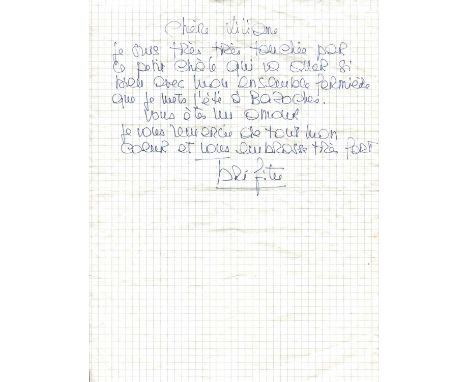 Chère Viviane
je suis très très touchée par
ce petit châle qui va aller si
bien avec mon ensemble fermière
que je mets l'été à Bazoches.
Vous êtes un amour
je vous remercie de tout mon
coeur et vous embrasse très fort
Brigitte